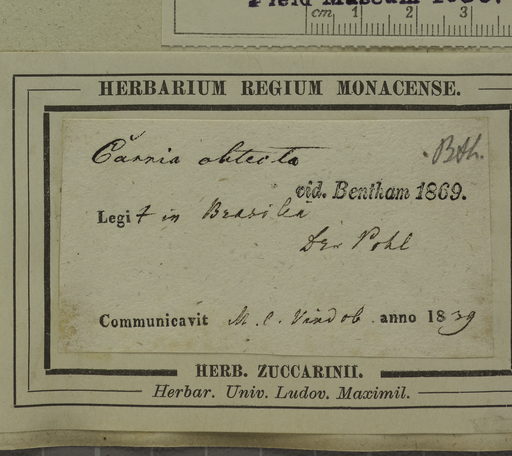 Field Museum
cm 1 2 3
HERBARIUM REGIUM MONACENSE.
Bth.
obtecta
vid. Bentham 1869.
Legit in Brasilia
Der Pohl
Communicavit M. C. Vindob. anno 1839
HERB. ZUCCARINII.
Herbar. Univ. Ludov. Maximil.